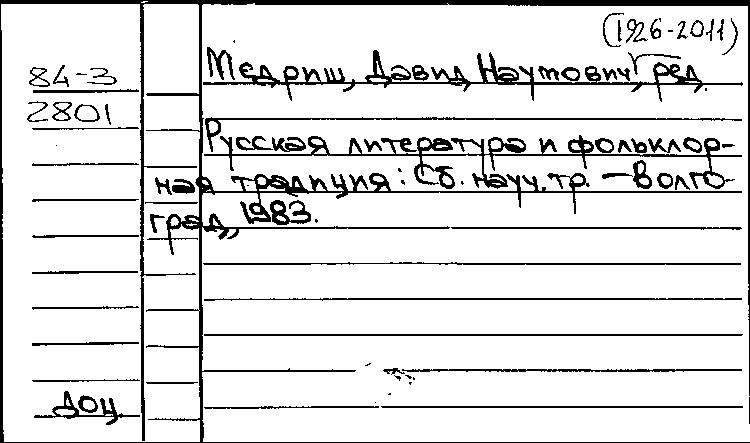 (1926-2011)
84-3
2801
Медриш, Давид Наумович, ред.
Русская литература и фольклор-
ная традиция: Сб. науч. тр. — Волго-
град, 1983.
доц.